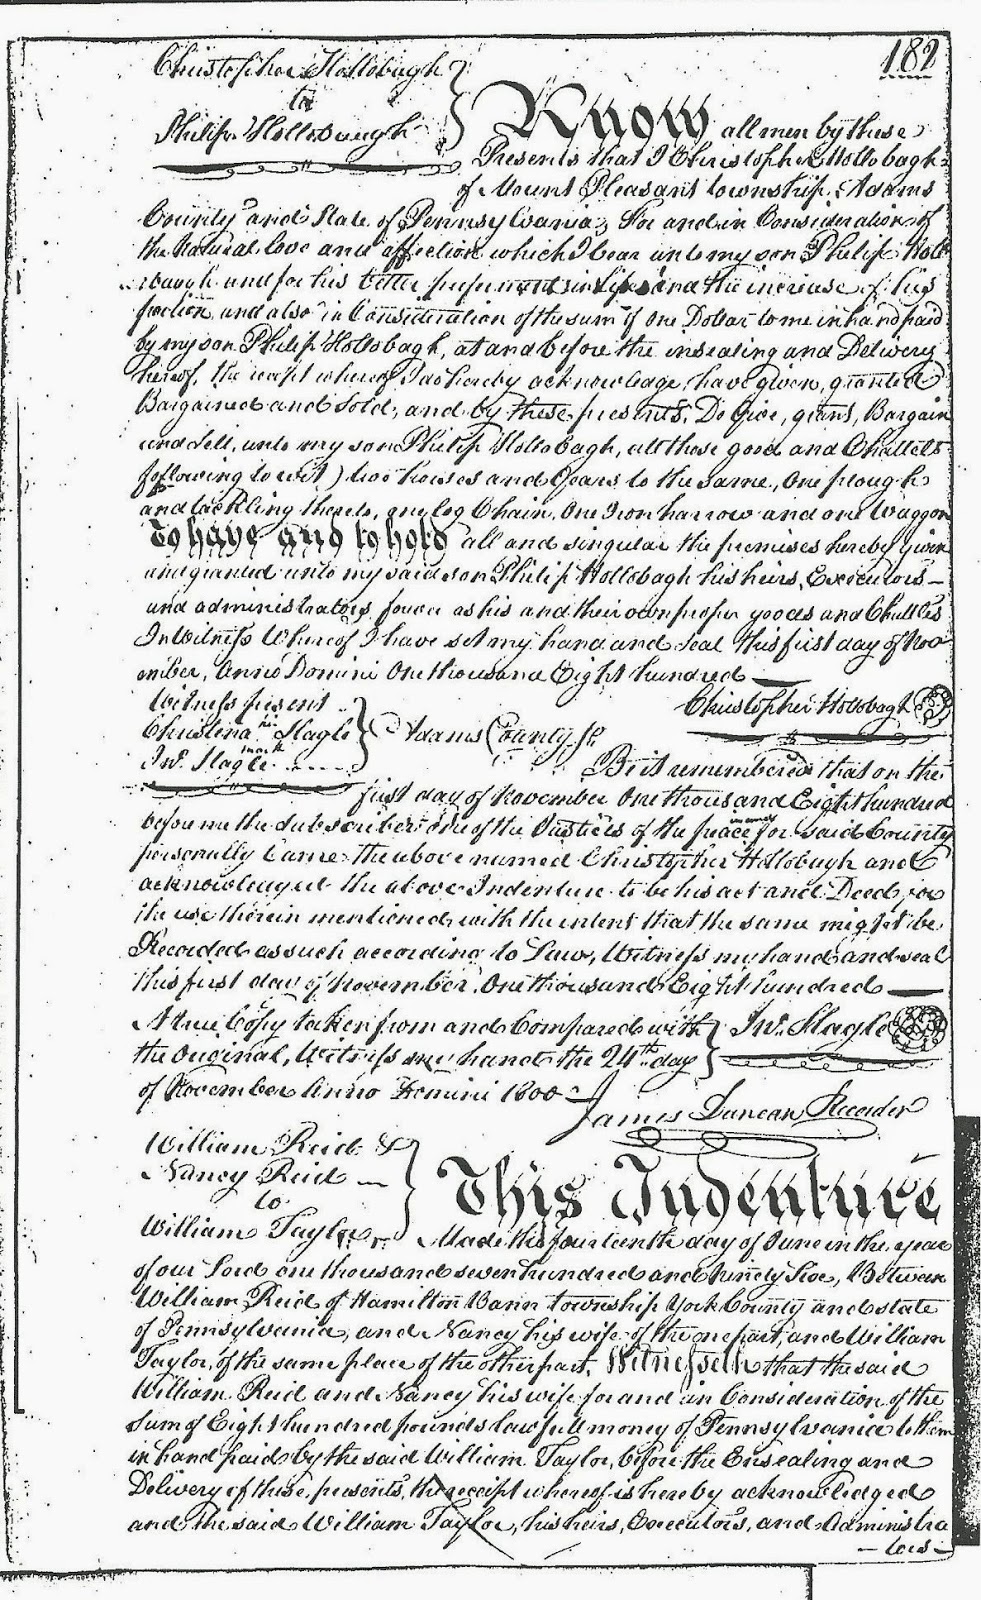 182
Christopher Hollobaugh
to
Philip Hollobaugh
Know all men by these
Presents that I Christopher Hollobagh
of Mount Pleasant township, Adams
County and State of Pennsylvania, For and in Consideration of
the Natural love and affection which I bear unto my son Philip Hollo
baugh and for his better preferment in life and the increase of his
portion, and also in Consideration of the sum of one Dollar to me in hand paid
by my son Philip Hollobagh, at and before the ensealing and Delivery
hereof, the receipt whereof I do hereby acknowledge, have given, granted
Bargained and Sold, and by these presents, Do Give, grant, Bargain
and Sell, unto my son Philip Hollobagh, all those good and Chattels
following to wit) two horses and Gears to the same, One plough
and tackling thereto, one log Chain, One Iron harrow and one Waggon
To have and to hold all and singular the premises hereby given
and granted unto my said son Philip Hollobagh his heirs, Executors
and administrators forever as his and their own proper goods and Chattles
In Witness Whereof I have set my hand and seal this first day of Nov
ember, Anno Domini One thousand Eight hundred
Witness present
Christena his Slagle
mark
Jno. Slagle
Christopher Hollobagh
Adams County Ss
Be it remembered that on the
first day of November One thousand Eight hundred
before me the Subscriber one of the Justices of the peace in and for said County
personally Came the above named Christopher Hollobugh and
acknowleaged the above Indenture to be his act and Deed for
the use therein mentioned with the intent that the same might be
Recorded as such according to Law, Witness my hand and seal
this first day of November, One thousand Eight hundred
A true Copy taken from and Compared with
the Original, Witness my hand the 24th day
of November Anno Domini 1800
Jno. Slagle
James Duncan Recorder
William Reid &
Nancy Reid
to
William Taylor
This Indenture
Made this fourteenth day of June in the year
of our Lord one thousand seven hundred and Ninety Five, Between
William Reid of Hamilton Bann township York County and state
of Pennsylvania, and Nancy his wife of the one part, and William
Taylor, of the same place of the other part, Witnesseth that the said
William Reid and Nancy his wife for and in Consideration of the
Sum of Eight hundred pounds lawfull money of Pennsylvania to them
in hand paid by the said William Taylor, before the Ensealing and
Delivery of these presents, the receipt whereof is hereby acknowledged
and the said William Taylor, his heirs, Executors, and Administra
tors